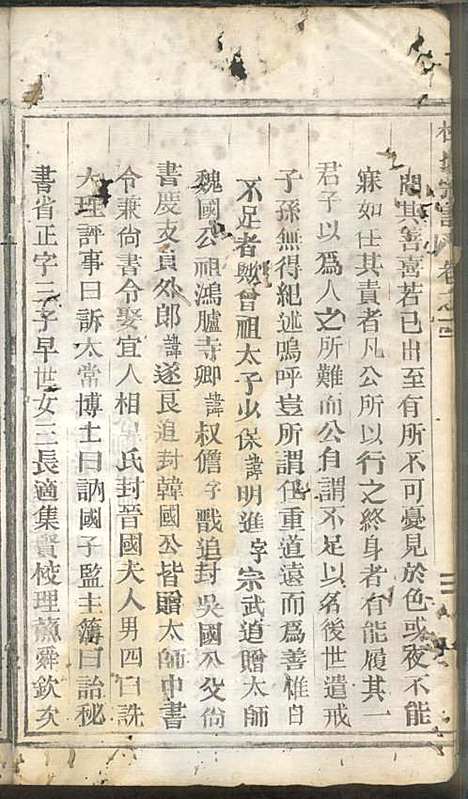 聞其善喜若己出至有所不可憂見於色或夜不能
寐如任其責者凡公所以行之終身者有能履其一
君子以爲人之所難而公自謂不足以名後世遺戒
子孫無得紀述嗚呼豈所謂任重道遠而爲善惟日
不足者歟曾祖太子少保諱明進字宗武追贈太師
魏國公祖鴻臚寺卿諱叔儋字戬追封吳國公父尚
書度支員外郎諱遂良追封韓國公皆贈太師中書
令兼尚書令娶宜人相 氏封晉國夫人男四曰詵
大理評事曰訴太常博士曰訥國子監主簿曰詒秘
書省正字三子早世女三長適集賢校理蘇舜欽次